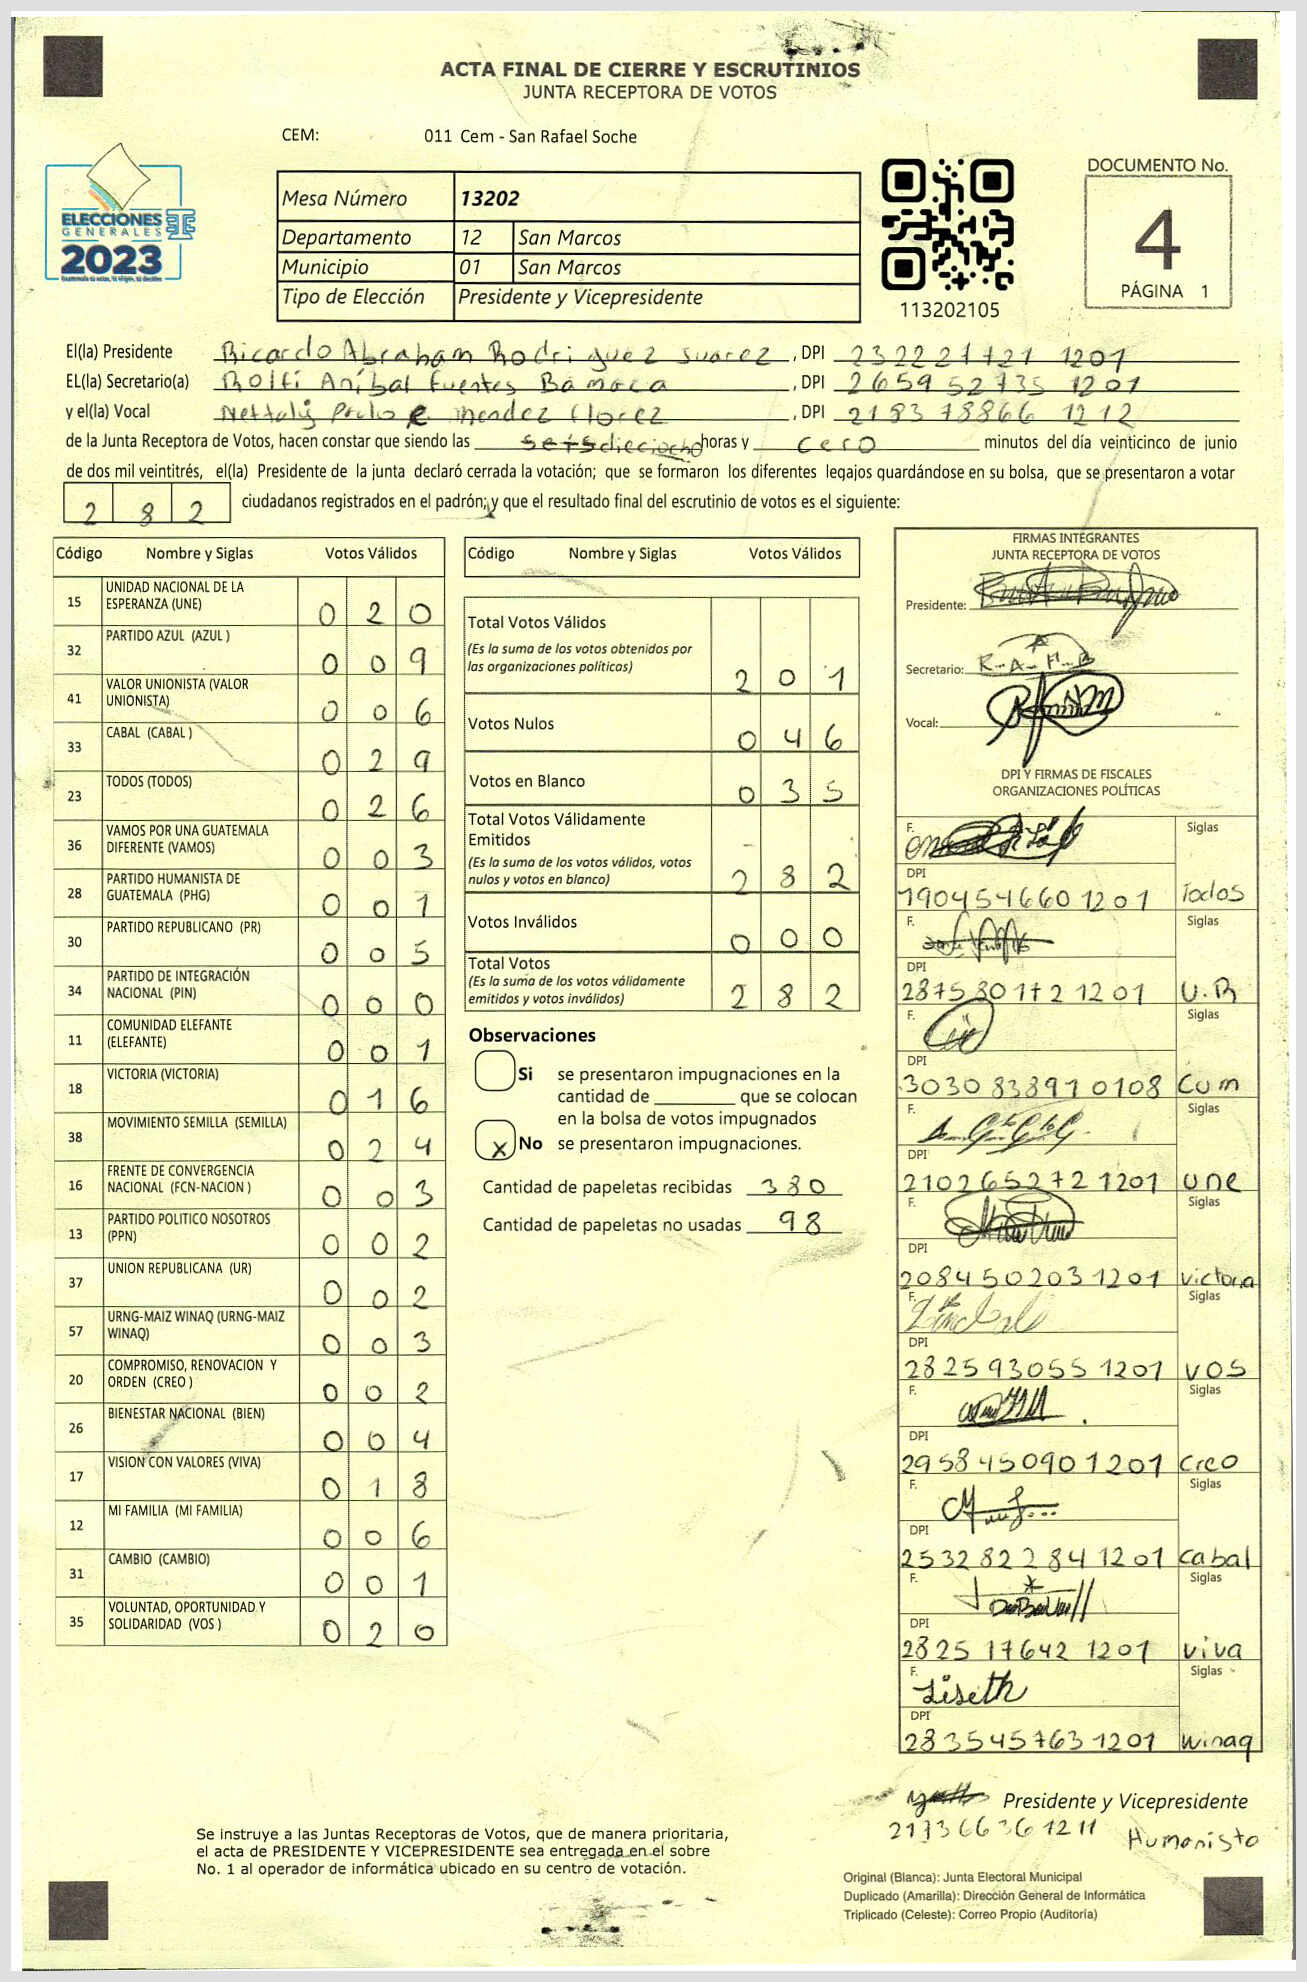 ACTA FINAL DE CIERRE Y ESCRUTINIOS
JUNTA RECEPTORA DE VOTOS
CEM: 011 Cem - San Rafael Soche
ELECCIONES
GENERALES
2023
Mesa Número 13202
Departamento 12 San Marcos
Municipio 01 San Marcos
Tipo de Elección Presidente y Vicepresidente
113202105
DOCUMENTO No.
4
PÁGINA 1
El(la) Presidente Ricardo Abraham Rodriguez Suarez , DPI 232221721 1201
EL(la) Secretario(a) Rolfi Aníbal Fuentes Bamaca , DPI 265952735 1201
y el(la) Vocal Mendez , DPI 218378866 1212
de la Junta Receptora de Votos, hacen constar que siendo las dieciocho horas y cero minutos del día veinticinco de junio
de dos mil veintitrés, el(la) Presidente de la junta declaró cerrada la votación; que se formaron los diferentes legajos quardándose en su bolsa, que se presentaron a votar
282 ciudadanos registrados en el padrón; y que el resultado final del escrutinio de votos es el siguiente:
Código Nombre y Siglas Votos Válidos
15 UNIDAD NACIONAL DE LA ESPERANZA (UNE) 020
32 PARTIDO AZUL (AZUL ) 009
41 VALOR UNIONISTA (VALOR UNIONISTA) 006
33 CABAL (CABAL ) 029
23 TODOS (TODOS) 026
36 VAMOS POR UNA GUATEMALA DIFERENTE (VAMOS) 003
28 PARTIDO HUMANISTA DE GUATEMALA (PHG) 001
30 PARTIDO REPUBLICANO (PR) 005
34 PARTIDO DE INTEGRACIÓN NACIONAL (PIN) 000
11 COMUNIDAD ELEFANTE (ELEFANTE) 001
18 VICTORIA (VICTORIA) 016
38 MOVIMIENTO SEMILLA (SEMILLA) 024
16 FRENTE DE CONVERGENCIA NACIONAL (FCN-NACION ) 003
13 PARTIDO POLITICO NOSOTROS (PPN) 002
37 UNION REPUBLICANA (UR) 002
57 URNG-MAIZ WINAQ (URNG-MAIZ WINAQ) 003
20 COMPROMISO, RENOVACION Y ORDEN (CREO ) 002
26 BIENESTAR NACIONAL (BIEN) 004
17 VISION CON VALORES (VIVA) 018
12 MI FAMILIA (MI FAMILIA) 006
31 CAMBIO (CAMBIO) 001
35 VOLUNTAD, OPORTUNIDAD Y SOLIDARIDAD (VOS ) 020
Código Nombre y Siglas Votos Válidos
Total Votos Válidos
(Es la suma de los votos obtenidos por
las organizaciones políticas) 201
Votos Nulos 046
Votos en Blanco 035
Total Votos Válidamente
Emitidos
(Es la suma de los votos válidos, votos
nulos y votos en blanco) 282
Votos Inválidos 000
Total Votos
(Es la suma de los votos válidamente
emitidos y votos inválidos) 282
Observaciones
Si se presentaron impugnaciones en la
cantidad de ________ que se colocan
en la bolsa de votos impugnados
x No se presentaron impugnaciones.
Cantidad de papeletas recibidas 380
Cantidad de papeletas no usadas 98
FIRMAS INTEGRANTES
JUNTA RECEPTORA DE VOTOS
Presidente:
Secretario: R-A-F-B
Vocal:
DPI Y FIRMAS DE FISCALES
ORGANIZACIONES POLÍTICAS
F. Siglas
DPI
190454660 1201 Todos
F. Siglas
DPI
287580172 1201 U.R
F. Siglas
DPI
303083897 0108 Cum
F. Siglas
DPI
210265272 1201 une
F. Siglas
DPI
208450203 1201 victoria
F. Siglas
DPI
282593055 1201 VOS
F. Siglas
DPI
295845090 1201 Creo
F. Siglas
DPI
253282284 1201 Cabal
F. Siglas
DPI
282517642 1201 viva
F. Liseth Siglas
DPI
283545763 1201 winaq
Presidente y Vicepresidente
217366636 1211 Humanisto
Se instruye a las Juntas Receptoras de Votos, que de manera prioritaria,
el acta de PRESIDENTE Y VICEPRESIDENTE sea entregada en el sobre
No. 1 al operador de informática ubicado en su centro de votación.
Original (Blanca): Junta Electoral Municipal
Duplicado (Amarilla): Dirección General de Informática
Triplicado (Celeste): Correo Propio (Auditoría)